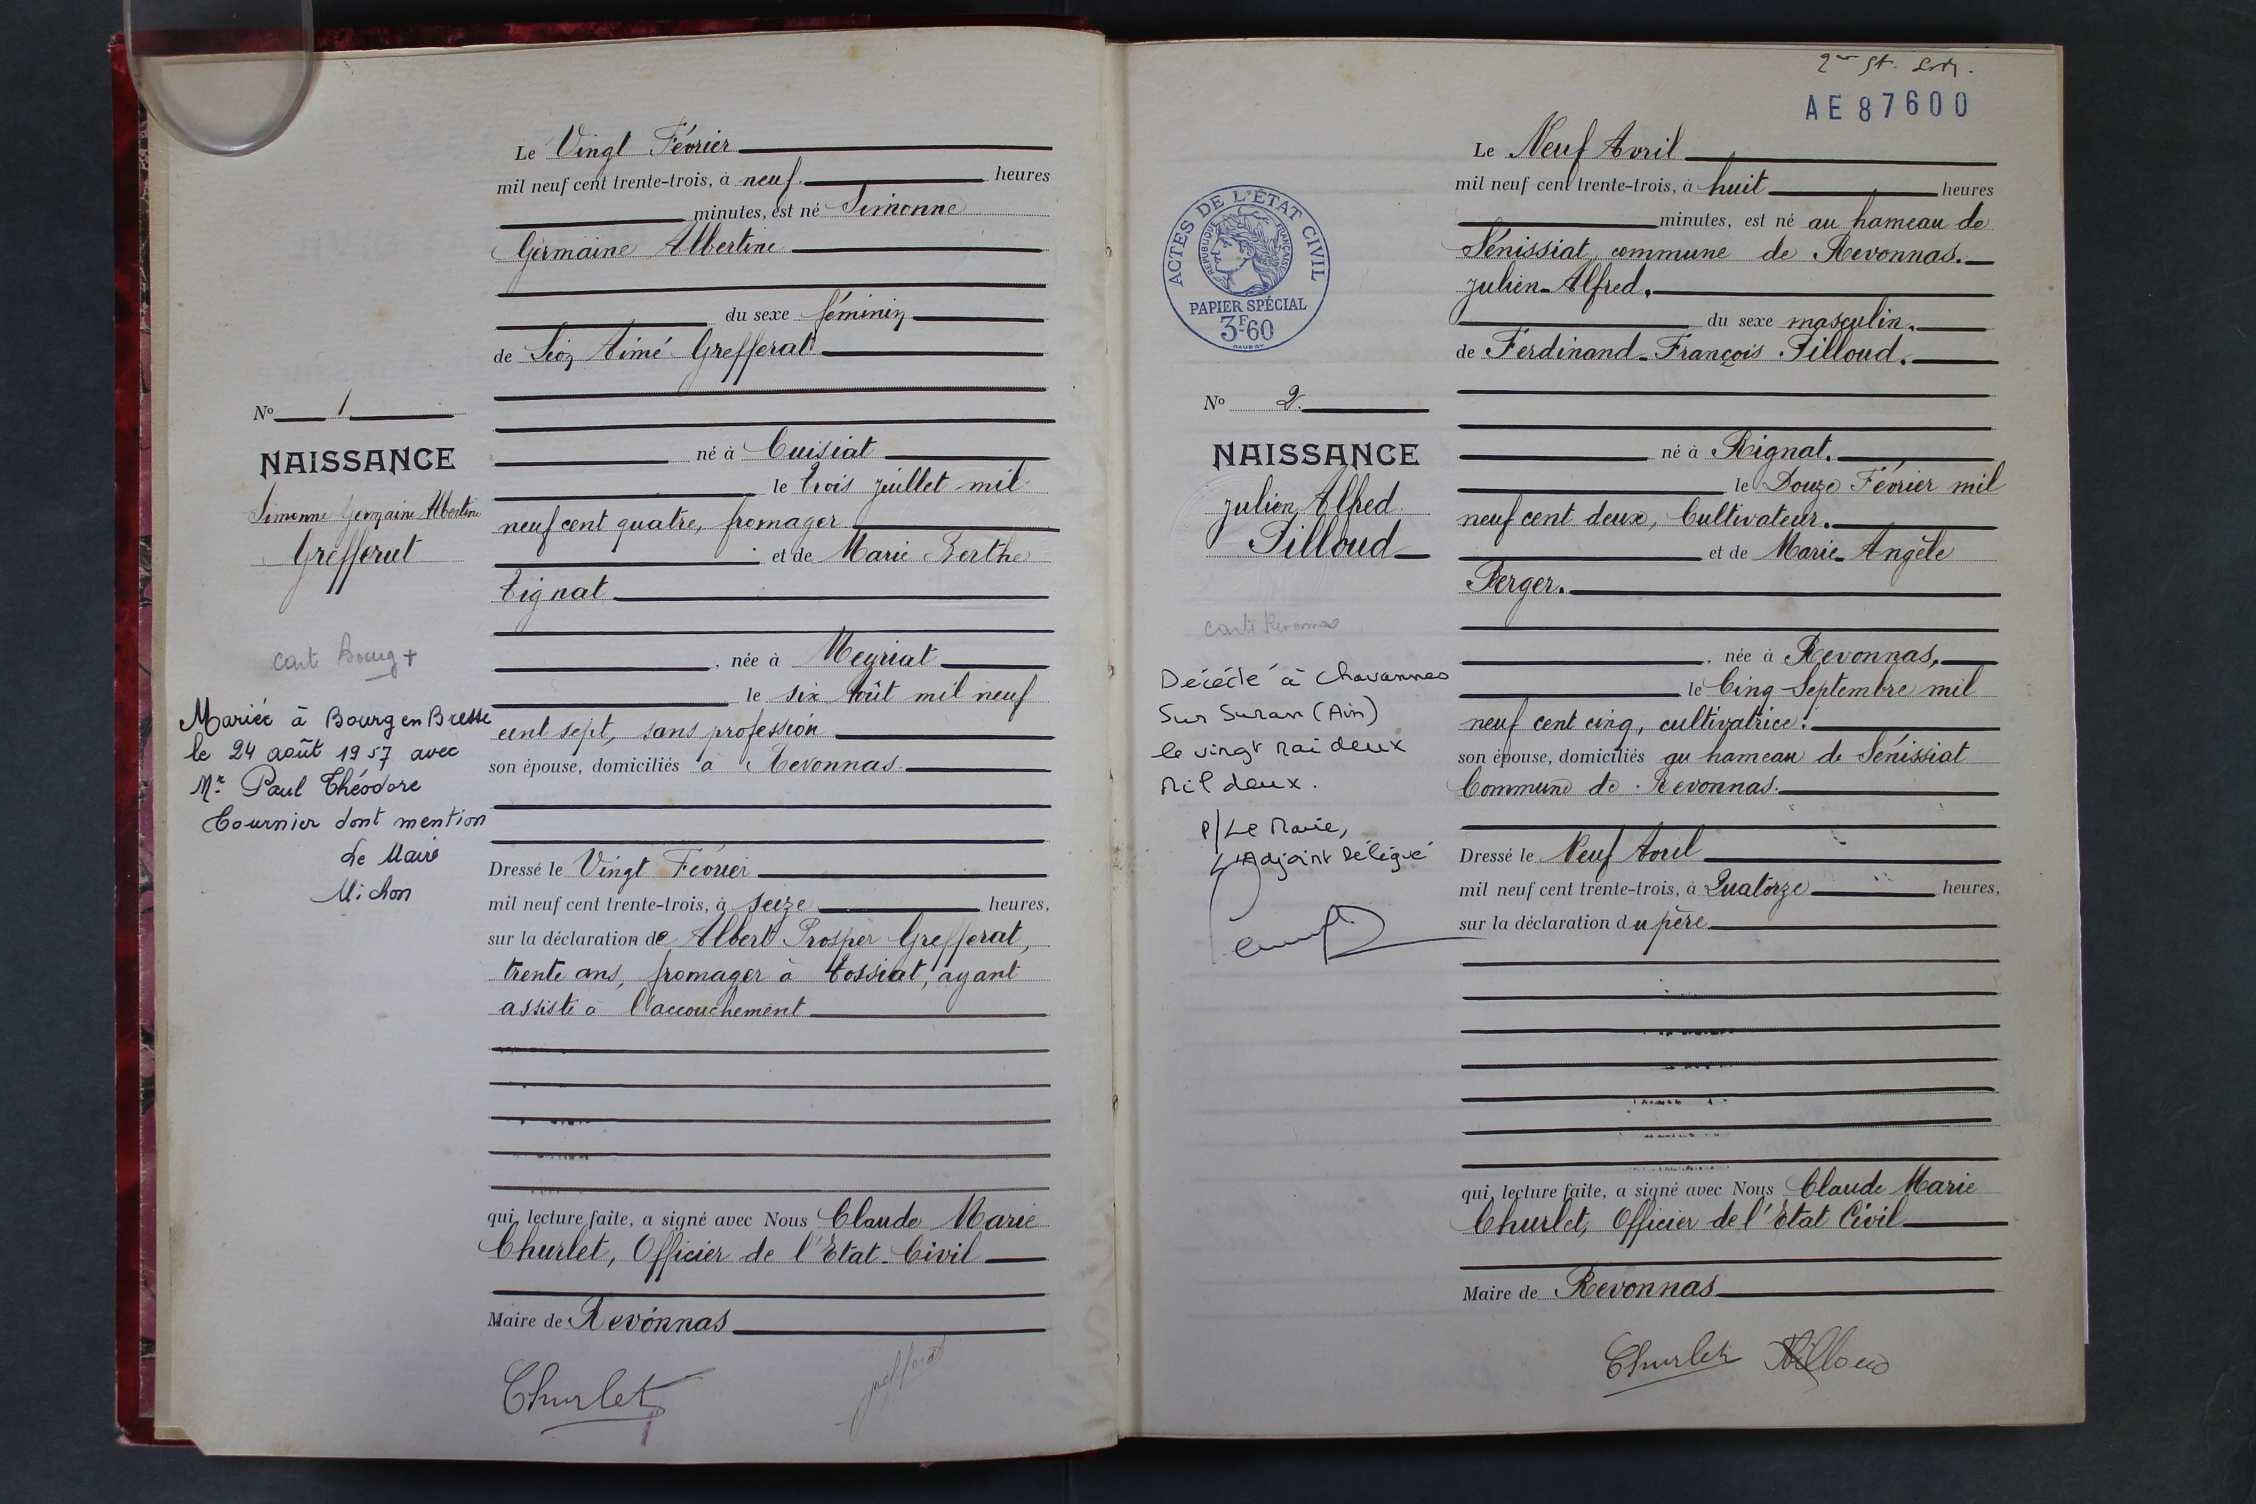 Le Vingt Février
mil neuf cent trente-trois, à neuf heures
minutes, est né Simonne
Germaine Albertine
du sexe féminin
de Léon Aimé Grefferat
né à Cuisiat
le trois juillet mil
neuf cent quatre, fromager
et de Marie Berthe
Tignat
, née à Meyriat
le six Août mil neuf
cent sept, sans profession
son épouse, domiciliés à Revonnas.
Dressé le Vingt Février
mil neuf cent trente-trois, à seize heures,
sur la déclaration de Albert Prosper Grefferat,
trente ans, fromager à Tossiat, ayant
assisté à l'accouchement
qui, lecture faite, a signé avec Nous Claude Marie
Churlet, Officier de l'Etat-Civil
Maire de Revonnas
Churlet
No 1
NAISSANCE
Simonne Germaine Albertine
Grefferat
carte Bourg +
Mariée à Bourg en Bresse
le 24 août 1957 avec
Mr Paul Théodore
Tournier dont mention
Le Maire
Michon
AE87600
ACTES DE L'ÉTAT CIVIL
RÉPUBLIQUE FRANÇAISE
PAPIER SPÉCIAL
3F60
Le Neuf Avril
mil neuf cent trente-trois, à huit heures
minutes, est né au hameau de
Sénissiat, commune de Revonnas.
Julien-Alfred.
du sexe masculin.
de Ferdinand-François Pilloud.
né à Rignat.
le Douze Février mil
neuf cent deux, Cultivateur.
et de Marie-Angèle
Perger.
, née à Revonnas,
le Cinq Septembre mil
neuf cent cinq, cultivatrice.
son épouse, domiciliés au hameau de Sénissiat
Commune de Revonnas.
Dressé le Neuf Avril
mil neuf cent trente-trois, à Quatorze heures,
sur la déclaration du père
qui, lecture faite, a signé avec Nous Claude Marie
Churlet, Officier de l'Etat Civil
Maire de Revonnas
Churlet Pilloud
No 2.
NAISSANCE
Julien Alfred
Pilloud
carte Revonnas
Décédé à Chavannes
Sur Suran (Ain)
le vingt mai deux
mil deux.
P/ Le Maire,
L'Adjoint Délégué